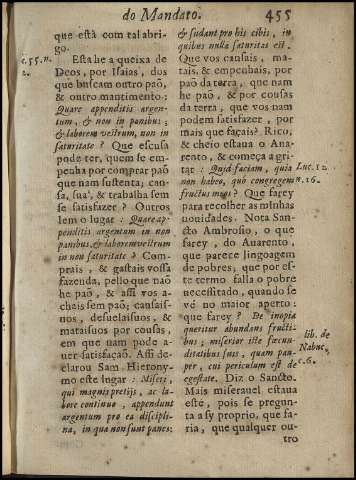 do Mandato. 455
que està com tal abri-
go.
Esta he a queixa de
c.55.n.
2.
Deos, por Isaias, dos
que buscam outro paõ,
& outro mantimento:
Quare appenditis argen-
tum, & non in panibus;
& laborem vestrum, non in
saturitate? Que escusa
pode ter, quem se em-
penha por comprar paõ
que nam sustenta; can-
sa, sua, & trabalha sem
se satisfazer? Outros
lem o lugar: Quare ap-
penditis argentum in non
panibus, & laborem vestrum
in non saturitate? Com-
prais, & gastais vossa
fazenda, pello que naõ
he paõ, & assi vos a-
cheis sem paõ; cansais-
nos, desuelaisuos, &
mataisuos por cousas,
em que nam pode a-
uer satisfaçaõ. Assi de-
clarou Sam Hierony-
mo este lugar: Miseri,
qui magnis pretijs, ac la-
bore continuo, appendunt
argentum pro ea discipli-
na, in qua non sunt panes;
& sudant pro his cibis, in
quibus nulla saturitas est.
Que vos cansais, ma-
tais, & empenhais, por
paõ da terra, que nam
he paõ, & por cousas
da terra, que vos nam
podem satisfazer, por
mais que façais? Rico,
& cheio estaua o Aua-
rento, & começa a gri-
tar: Quid faciam, quia
Luc. 12.
non habeo, quò congregem
n. 16.
fructus meos? Que farey
para recolher as minhas
nouidades. Nota San-
cto Ambrosio, o que
farey, do Auarento,
que parece lingoagem
de pobres; que por es-
te termo falla o pobre
necessitado, quando se
vé no maior aperto:
que farey? De inopia
queritur abundans fructi-
lib. de
bus; miserior iste fœcun-
Nabuc.
ditatibus suis, quam pau-
per, cui periculum est de
c.6.
egestate. Diz o Sancto.
Mais miserauel estaua
este, pois se pregun-
ta a sy proprio, que fa-
ria, que qualquer ou-
tro